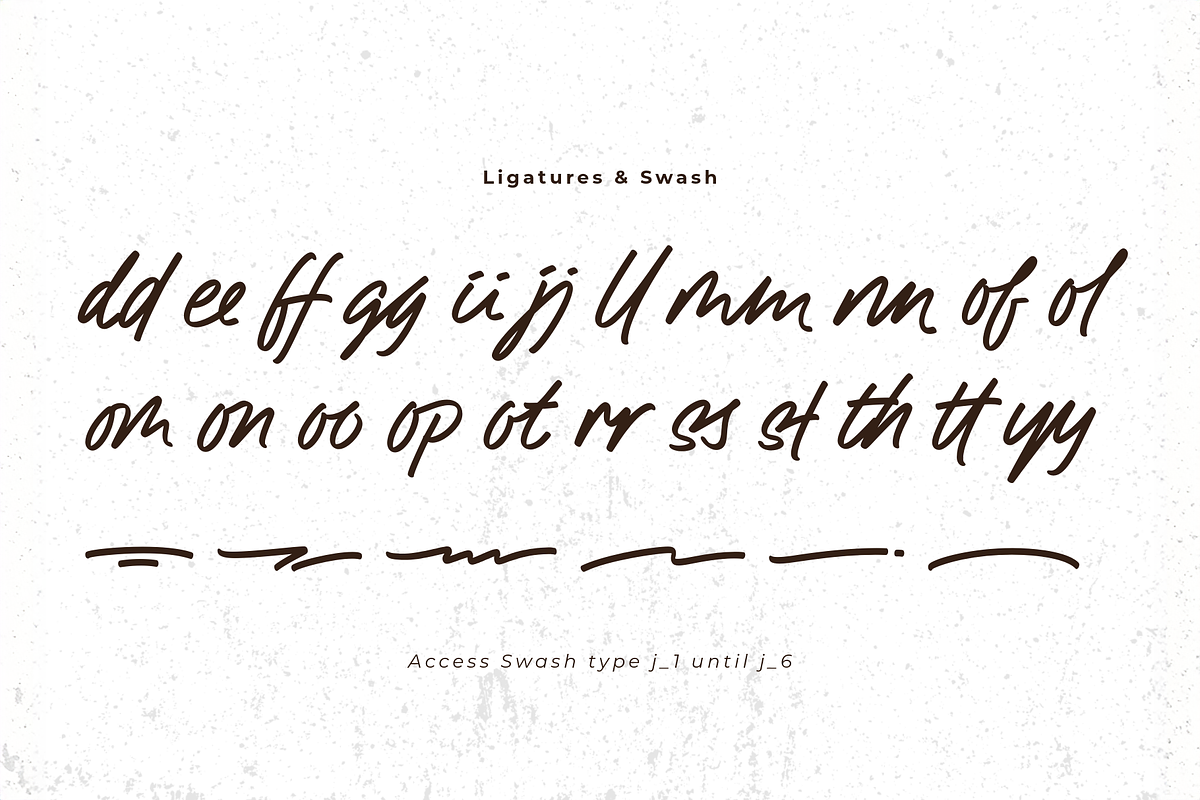 Ligatures & Swash
dd ee ff gg ii jj ll mm nn of ol
om on oo op ot rr ss st th tt yy
Access Swash type j_1 until j_6